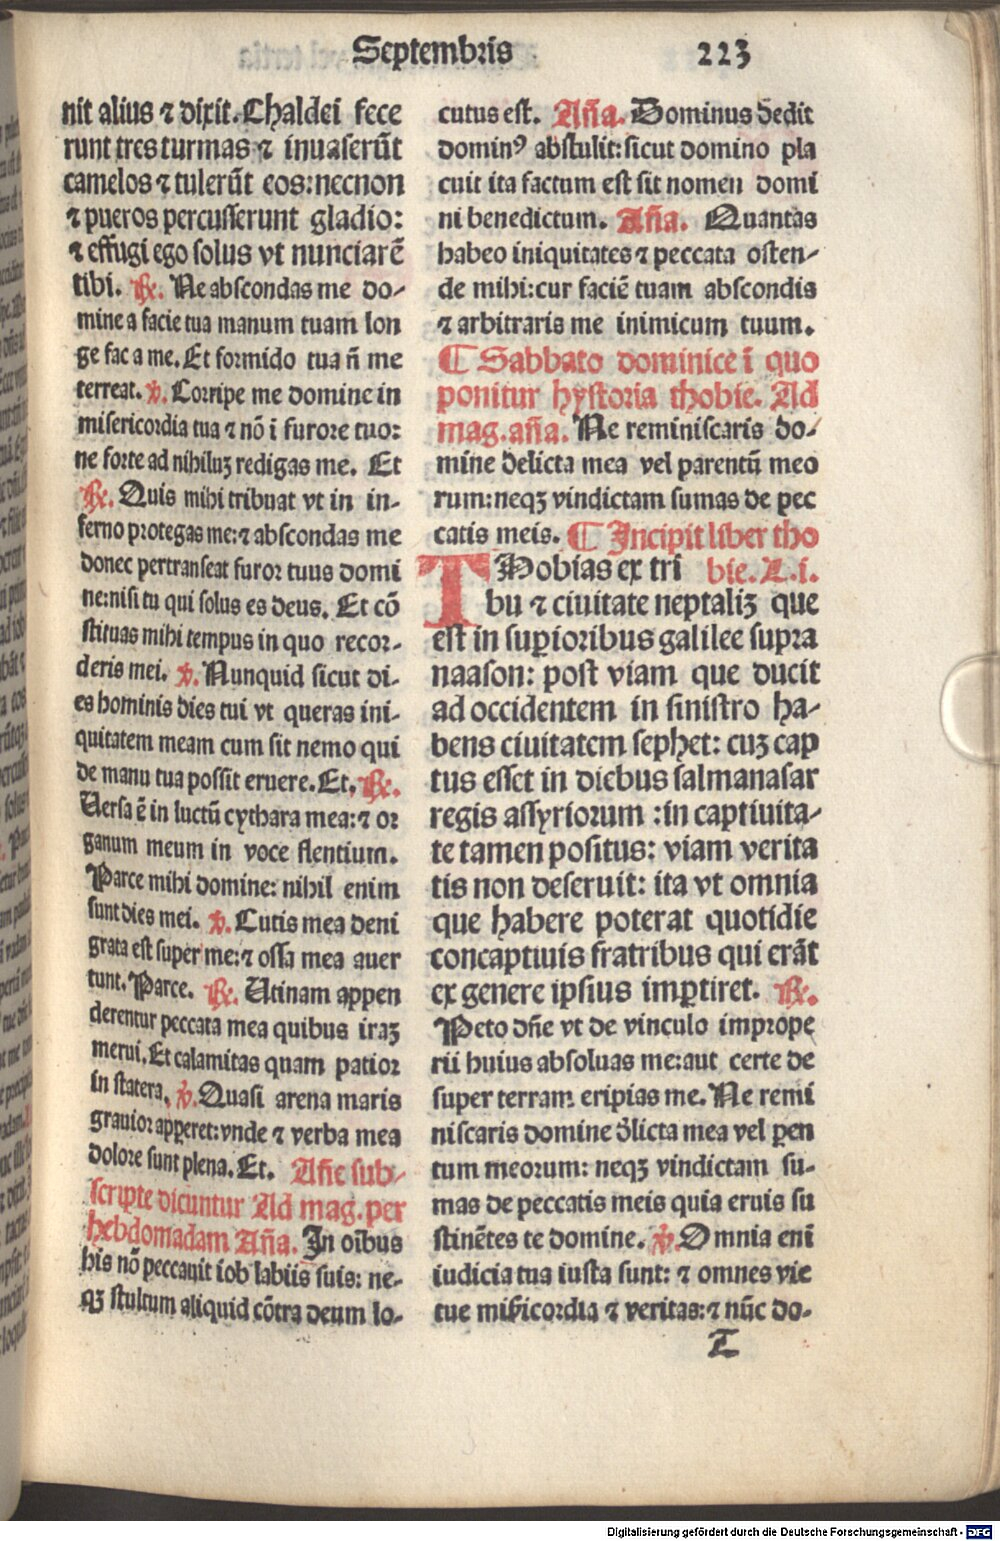 Septembris 223
nit alius ⁊ dixit. Chaldei fece
runt tres turmas ⁊ inuaserūt
camelos ⁊ tulerūt eos: necnon
⁊ pueros percusserunt gladio:
⁊ effugi ego solus vt nunciarē
tibi. ℟. Ne abscondas me do-
mine a facie tua manum tuam lon
ge fac a me. Et formido tua ñ me
terreat. ℣. Corripe me domine in
misericordia tua ⁊ nō i furore tuo:
ne forte ad nihiluꝫ redigas me. Et
℟. Quis mihi tribuat vt in in-
ferno protegas me: ⁊ abscondas me
donec pertranseat furor tuus domi
ne: nisi tu qui solus es deus. Et cō
stituas mihi tempus in quo recor-
deris mei. ℣. Nunquid sicut di-
es hominis dies tui vt queras ini-
quitatem meam cum sit nemo qui
de manu tua possit eruere. Et. ℟.
Uersa ē in luctū cythara mea: ⁊ or
ganum meum in voce flentium.
Parce mihi domine: nihil enim
sunt dies mei. ℣. Cutis mea deni
grata est super me: ⁊ ossa mea auer
tunt. Parce. ℟. Utinam appen
derentur peccata mea quibus iraꝫ
merui. Et calamitas quam patior
in statera. ℣. Quasi arena maris
grauior apperet: vnde ⁊ verba mea
dolore sunt plena. Et. Añe sub-
scripte dicuntur Ad mag. per
hebdomadam Aña. In oībus
his nō peccauit iob labiis suis: ne-
qꝫ stultum aliquid cōtra deum lo-
cutus est. Aña. Dominus dedit
dominꝰ abstulit: sicut domino pla
cuit ita factum est sit nomen domi
ni benedictum. Aña. Quantas
habeo iniquitates ⁊ peccata osten-
de mihi: cur faciē tuam abscondis
⁊ arbitraris me inimicum tuum.
¶ Sabbato dominice ī quo
ponitur hystoria thobie. Ad
mag. aña. Ne reminiscaris do-
mine delicta mea vel parentū meo
rum: neqꝫ vindictam sumas de pec
catis meis. ¶ Incipit liber tho
THobias ex tri bie. L. i.
bu ⁊ ciuitate neptaliꝫ que
est in suꝑioribus galilee supra
naason: post viam que ducit
ad occidentem in sinistro ha-
bens ciuitatem sephet: cuꝫ cap
tus esset in diebus salmanasar
regis assyriorum : in captiuita-
te tamen positus: viam verita
tis non deseruit: ita vt omnia
que habere poterat quotidie
concaptiuis fratribus qui erāt
ex genere ipsius imꝑtiret. ℟.
Peto dñe vt de vinculo imprope
rii huius absoluas me: aut certe de
super terram eripias me. Ne remi
niscaris domine d̄licta mea vel ꝑen
tum meorum: neqꝫ vindictam su-
mas de peccatis meis quia eruis su
stinētes te domine. ℣. Omnia eni
iudicia tua iusta sunt: ⁊ omnes vie
tue mīsericordia ⁊ veritas: ⁊ nūc do-
T
Digitalisierung gefördert durch die Deutsche Forschungsgemeinschaft - DFG